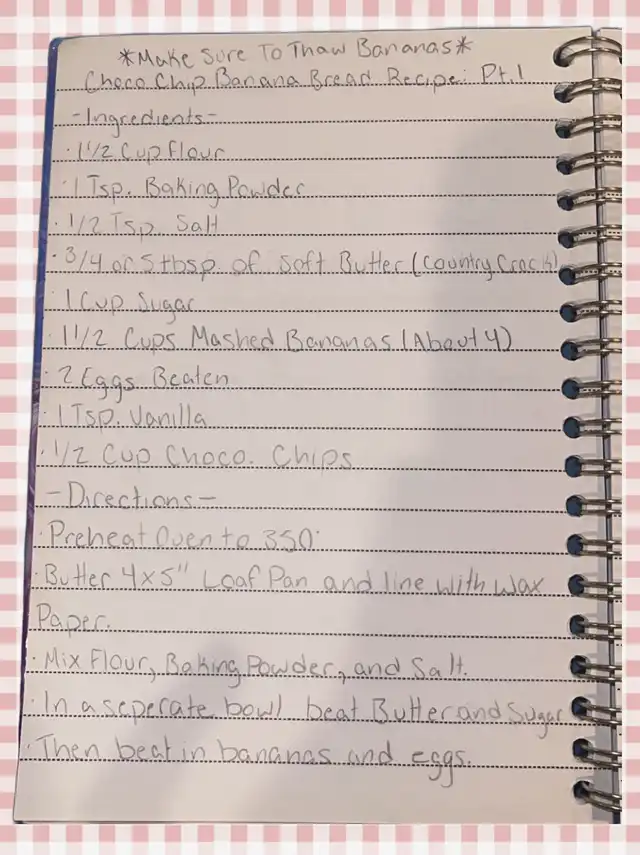 *Make Sure To Thaw Bananas*
Choco Chip Banana Bread Recipe: Pt.1
-Ingredients-
· 1 1/2 Cup Flour
· 1 Tsp. Baking Powder
· 1/2 Tsp. Salt
· 3/4 or 5 tbsp. of Soft Butter (Country Crock)
· 1 Cup Sugar
· 1 1/2 Cups Mashed Bananas (About 4)
· 2 Eggs Beaten
· 1 Tsp. Vanilla
· 1/2 Cup Choco. Chips
-Directions-
· Preheat Oven to 350°
· Butter 4x5" Loaf Pan and line with Wax
Paper.
· Mix Flour, Baking Powder, and Salt.
· In a seperate bowl beat Butter and Sugar
· Then beat in bananas and eggs.